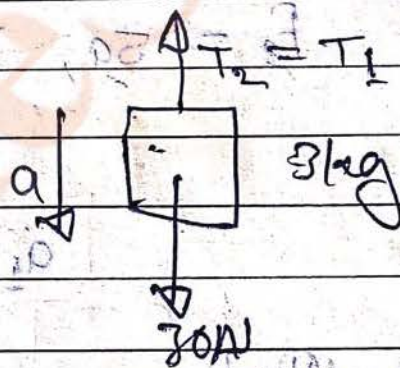 T₂ = T₁
a
3kg
30N